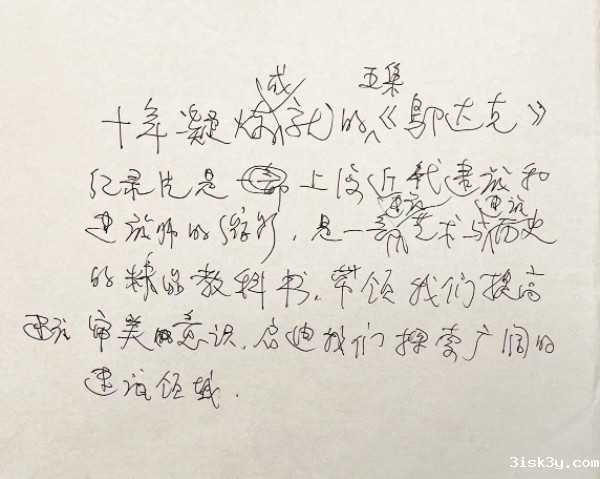 成 五集
十年凝炼的《邬达克》
纪录片是一部上海近代建筑和
建筑 建筑
建筑师的缩影,是一部艺术与历史
的精品教科书,带领我们提高
建筑审美的意识,启迪我们探索广阔的
建筑领域.
3isk3y.com